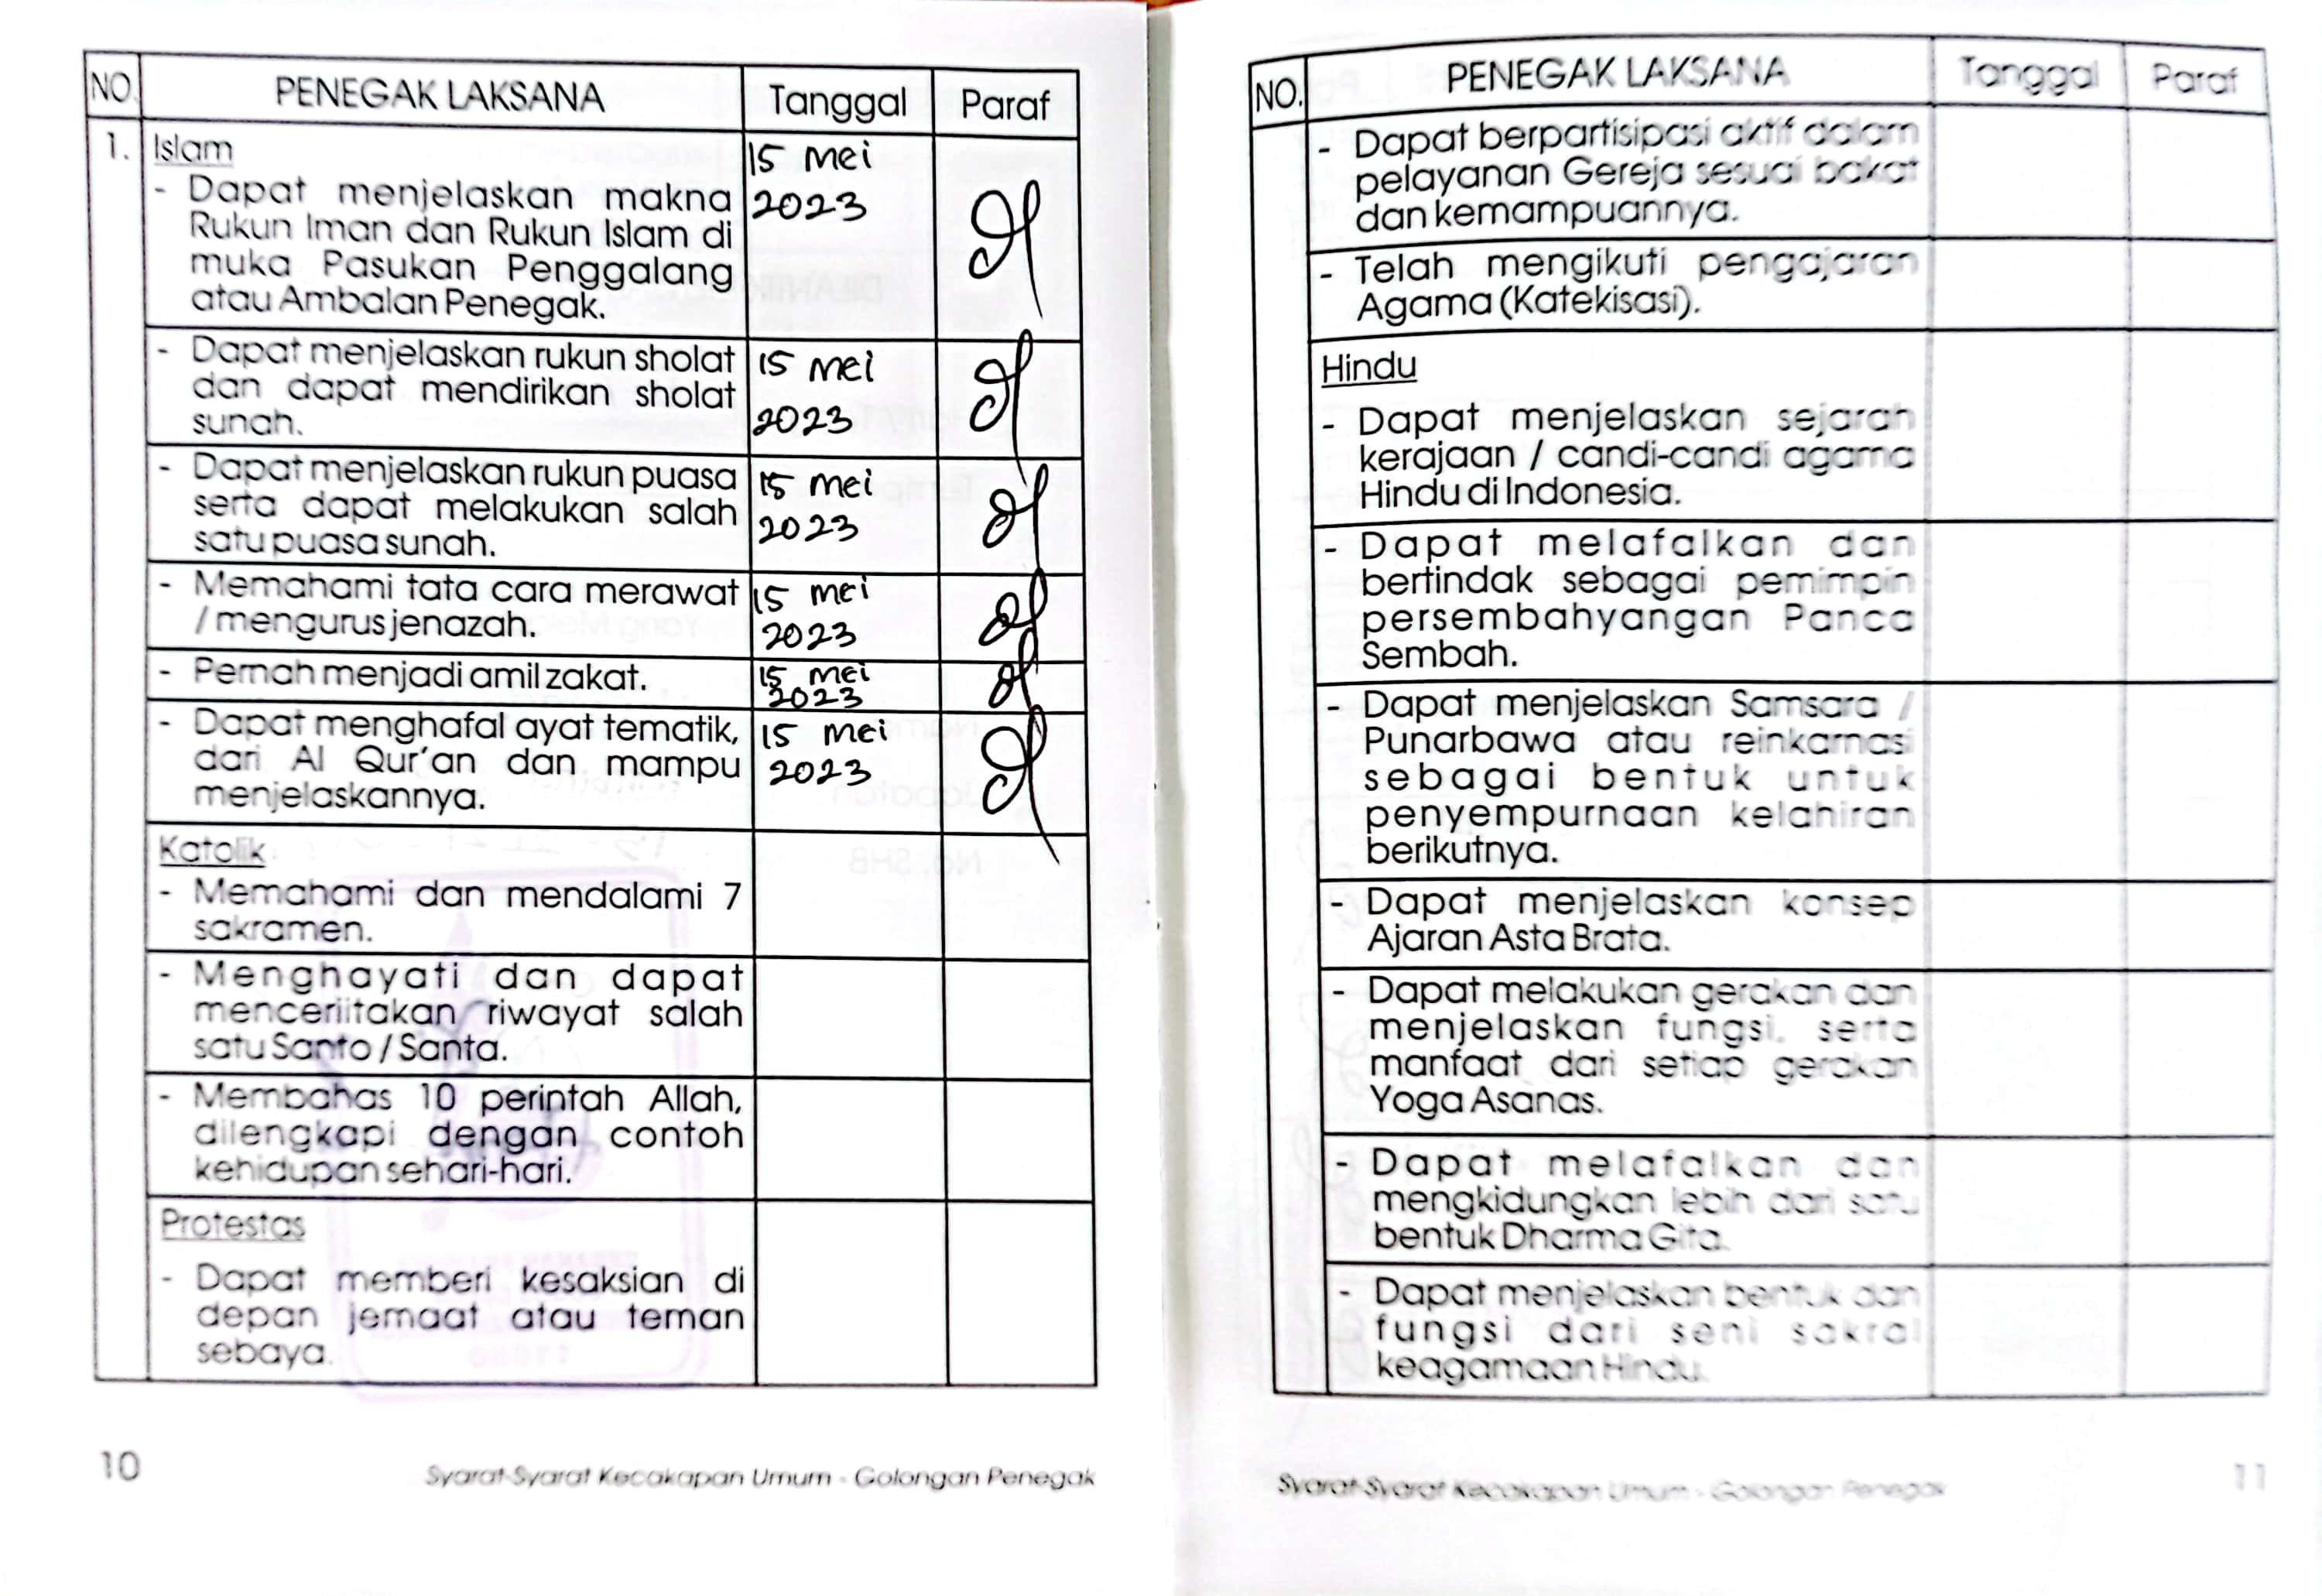 NO. PENEGAK LAKSANA Tanggal Paraf
1. Islam
15 Mei
- Dapat menjelaskan makna 2023
Rukun Iman dan Rukun Islam di
muka Pasukan Penggalang
atau Ambalan Penegak.
- Dapat menjelaskan rukun sholat 15 Mei
dan dapat mendirikan sholat
sunah. 2023
- Dapat menjelaskan rukun puasa 15 Mei
serta dapat melakukan salah 2023
satu puasa sunah.
- Memahami tata cara merawat 15 Mei
/ mengurus jenazah. 2023
- Pernah menjadi amil zakat. 15 Mei
2023
- Dapat menghafal ayat tematik, 15 Mei
dari Al Qur'an dan mampu 2023
menjelaskannya.
Katolik
- Memahami dan mendalami 7
sakramen.
- Menghayati dan dapat
menceriitakan riwayat salah
satu Santo / Santa.
- Membahas 10 perintah Allah,
dilengkapi dengan contoh
kehidupan sehari-hari.
Protestas
- Dapat memberi kesaksian di
depan jemaat atau teman
sebaya.
10 Syarat-Syarat Kecakapan Umum - Golongan Penegak
NO. PENEGAK LAKSANA Tanggal Paraf
- Dapat berpartisipasi aktif dalam
pelayanan Gereja sesuai bakat
dan kemampuannya.
- Telah mengikuti pengajaran
Agama (Katekisasi).
Hindu
- Dapat menjelaskan sejarah
kerajaan / candi-candi agama
Hindu di Indonesia.
- Dapat melafalkan dan
bertindak sebagai pemimpin
persembahyangan Panca
Sembah.
- Dapat menjelaskan Samsara /
Punarbawa atau reinkarnasi
sebagai bentuk untuk
penyempurnaan kelahiran
berikutnya.
- Dapat menjelaskan konsep
Ajaran Asta Brata.
- Dapat melakukan gerakan dan
menjelaskan fungsi, serta
manfaat dari setiap gerakan
Yoga Asanas.
- Dapat melafalkan dan
mengkidungkan lebih dari satu
bentuk Dharma Gita.
- Dapat menjelaskan bentuk dan
fungsi dari seni sakral
keagamaan Hindu.
Syarat-Syarat Kecakapan Umum - Golongan Penegak 11